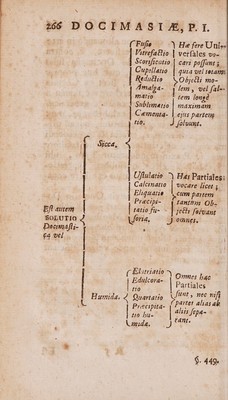 266 DOCIMASIÆ, P. I.
Est autem
SOLUTIO
Docimasti-
ca vel
Sicca.
Fusio
Vitrefactio
Scorificatio
Cupellatio
Reductio
Amalga-
matio
Sublimatio
Cæmenta-
tio.
Hæ fere Uni-
versales vo-
cari possunt;
quia vel totam
Objecti mo-
lem, vel sal-
tem longe
maximam
ejus partem
solvunt.
Ustulatio
Calcinatio
Eliquatio
Præcipi-
tatio fu-
soria.
Has Partiales
vocare licet;
cum partem
tantum Ob-
jecti solvant
omnes.
Humida.
Elutriatio
Edulcora-
tio
Quartatio
Præcipita-
tio hu-
mida.
Omnes hæ
Partiales
sunt, nec nisi
partes alias ab
aliis sepa-
rant.
§. 449.